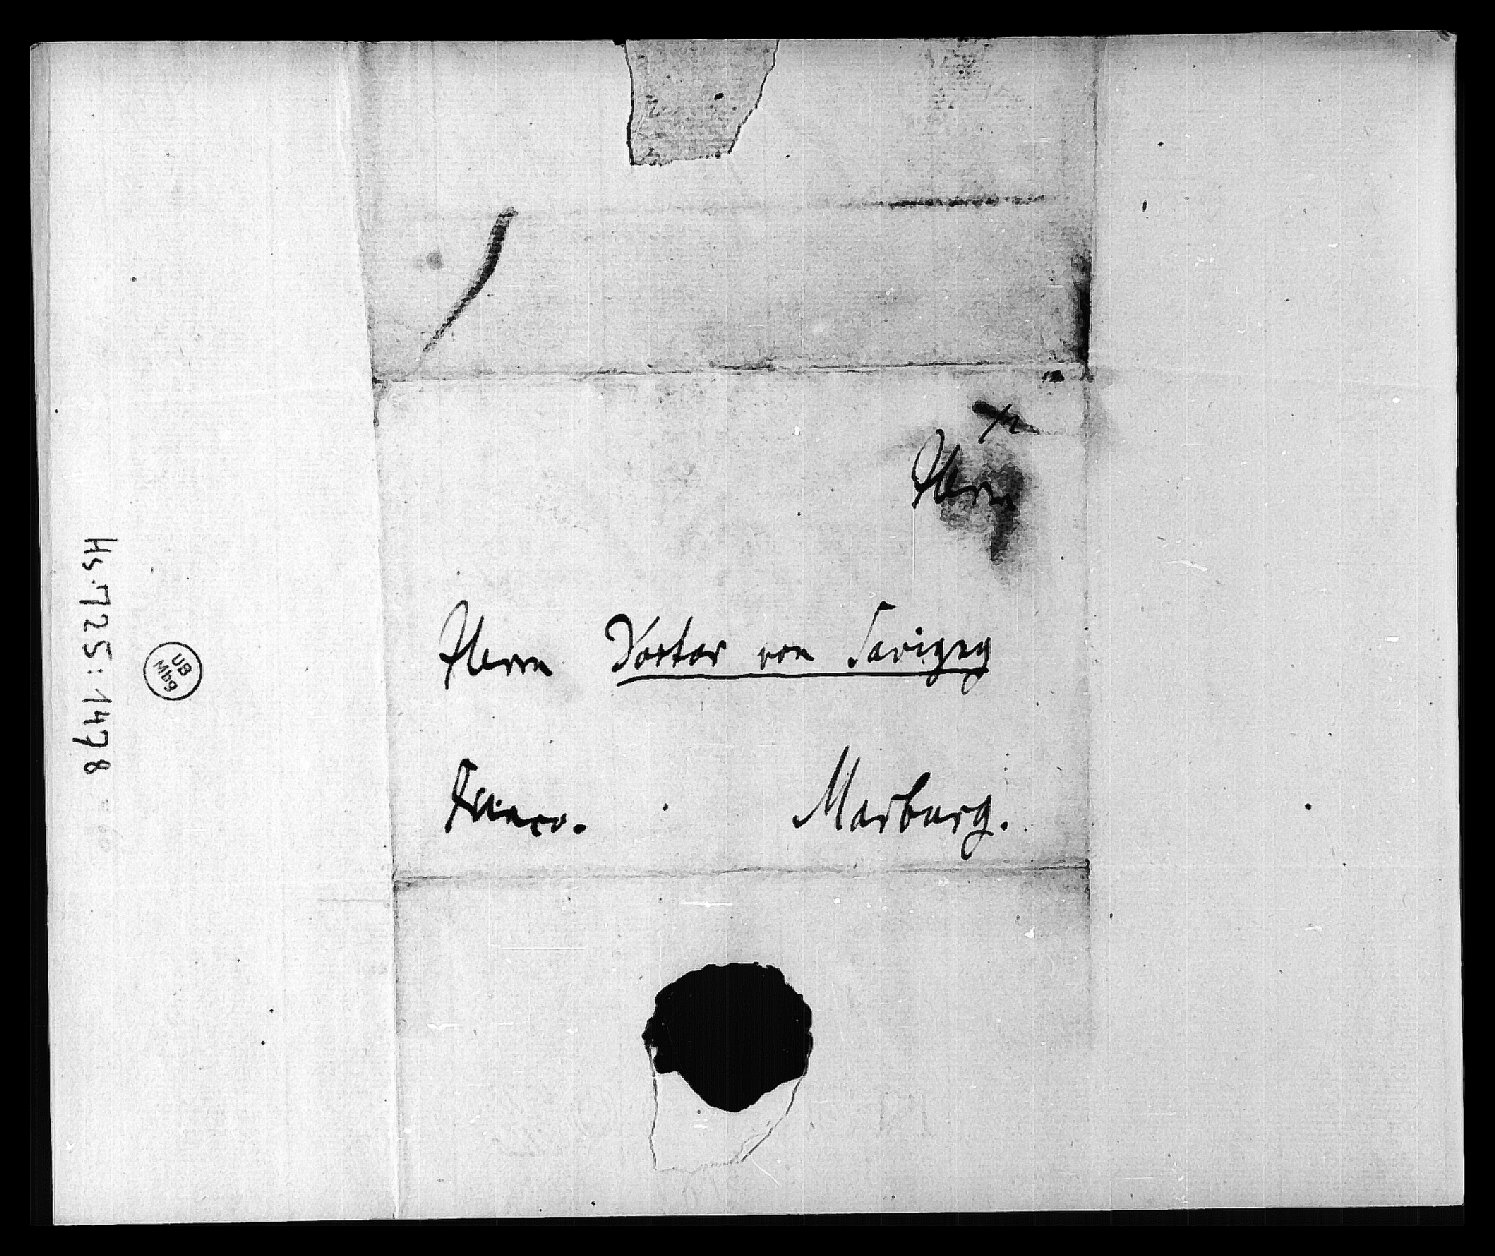 Herrn
Herrn Doctor von Savigny
Franco. Marburg.
Hs. 725:1478
UB
Mbg